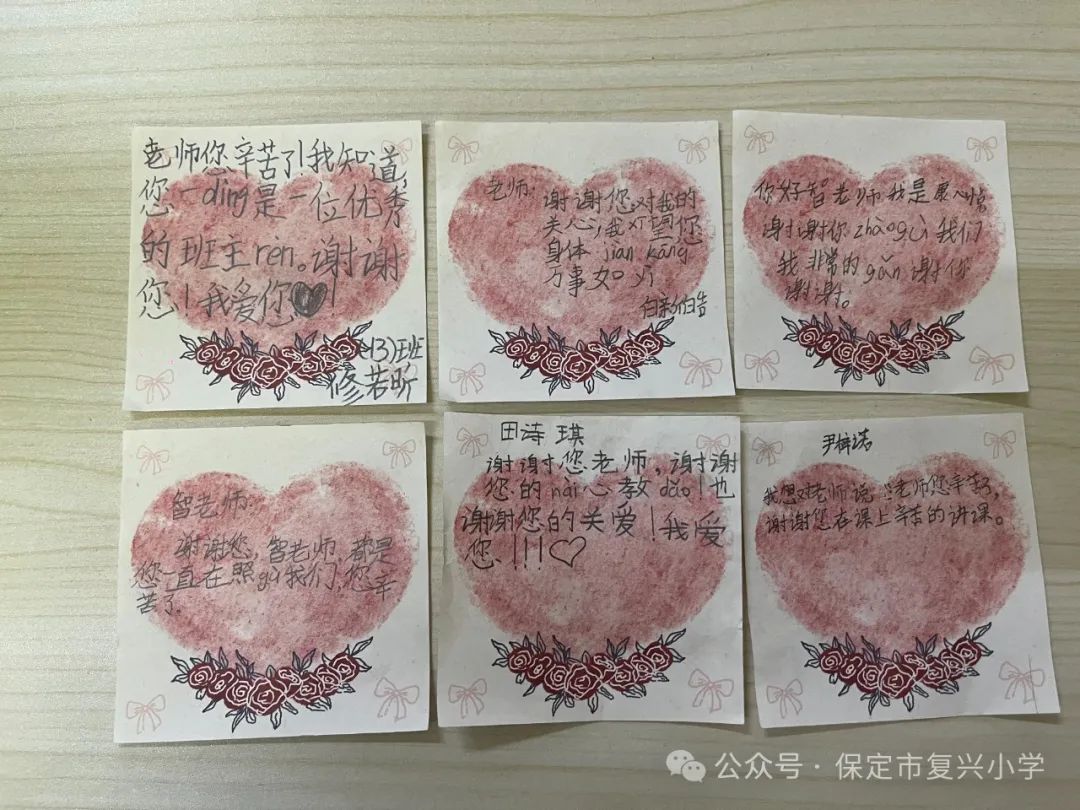 老师您辛苦了!我知道,
您一dìng是一位优秀
的班主rèn。谢谢
您!我爱您!
(3)班
修若昕
老师:
谢谢您对我的
关心,我希望您
身体jiàn kāng
万事如yì
你好智老师我是
谢谢你zhàogù我们
我非常的gǎn谢你
谢谢。
智老师:
谢谢您,智老师,都是
您一直在照gù我们,您辛
苦了
田诗琪
谢谢您老师,谢谢
您的nài心教dǎo!也
谢谢您的关爱!我爱
您!!!♡
尹梓诺
我想对老师说:老师您辛苦了,
谢谢您在课上辛苦的讲课。
公众号·保定市复兴小学